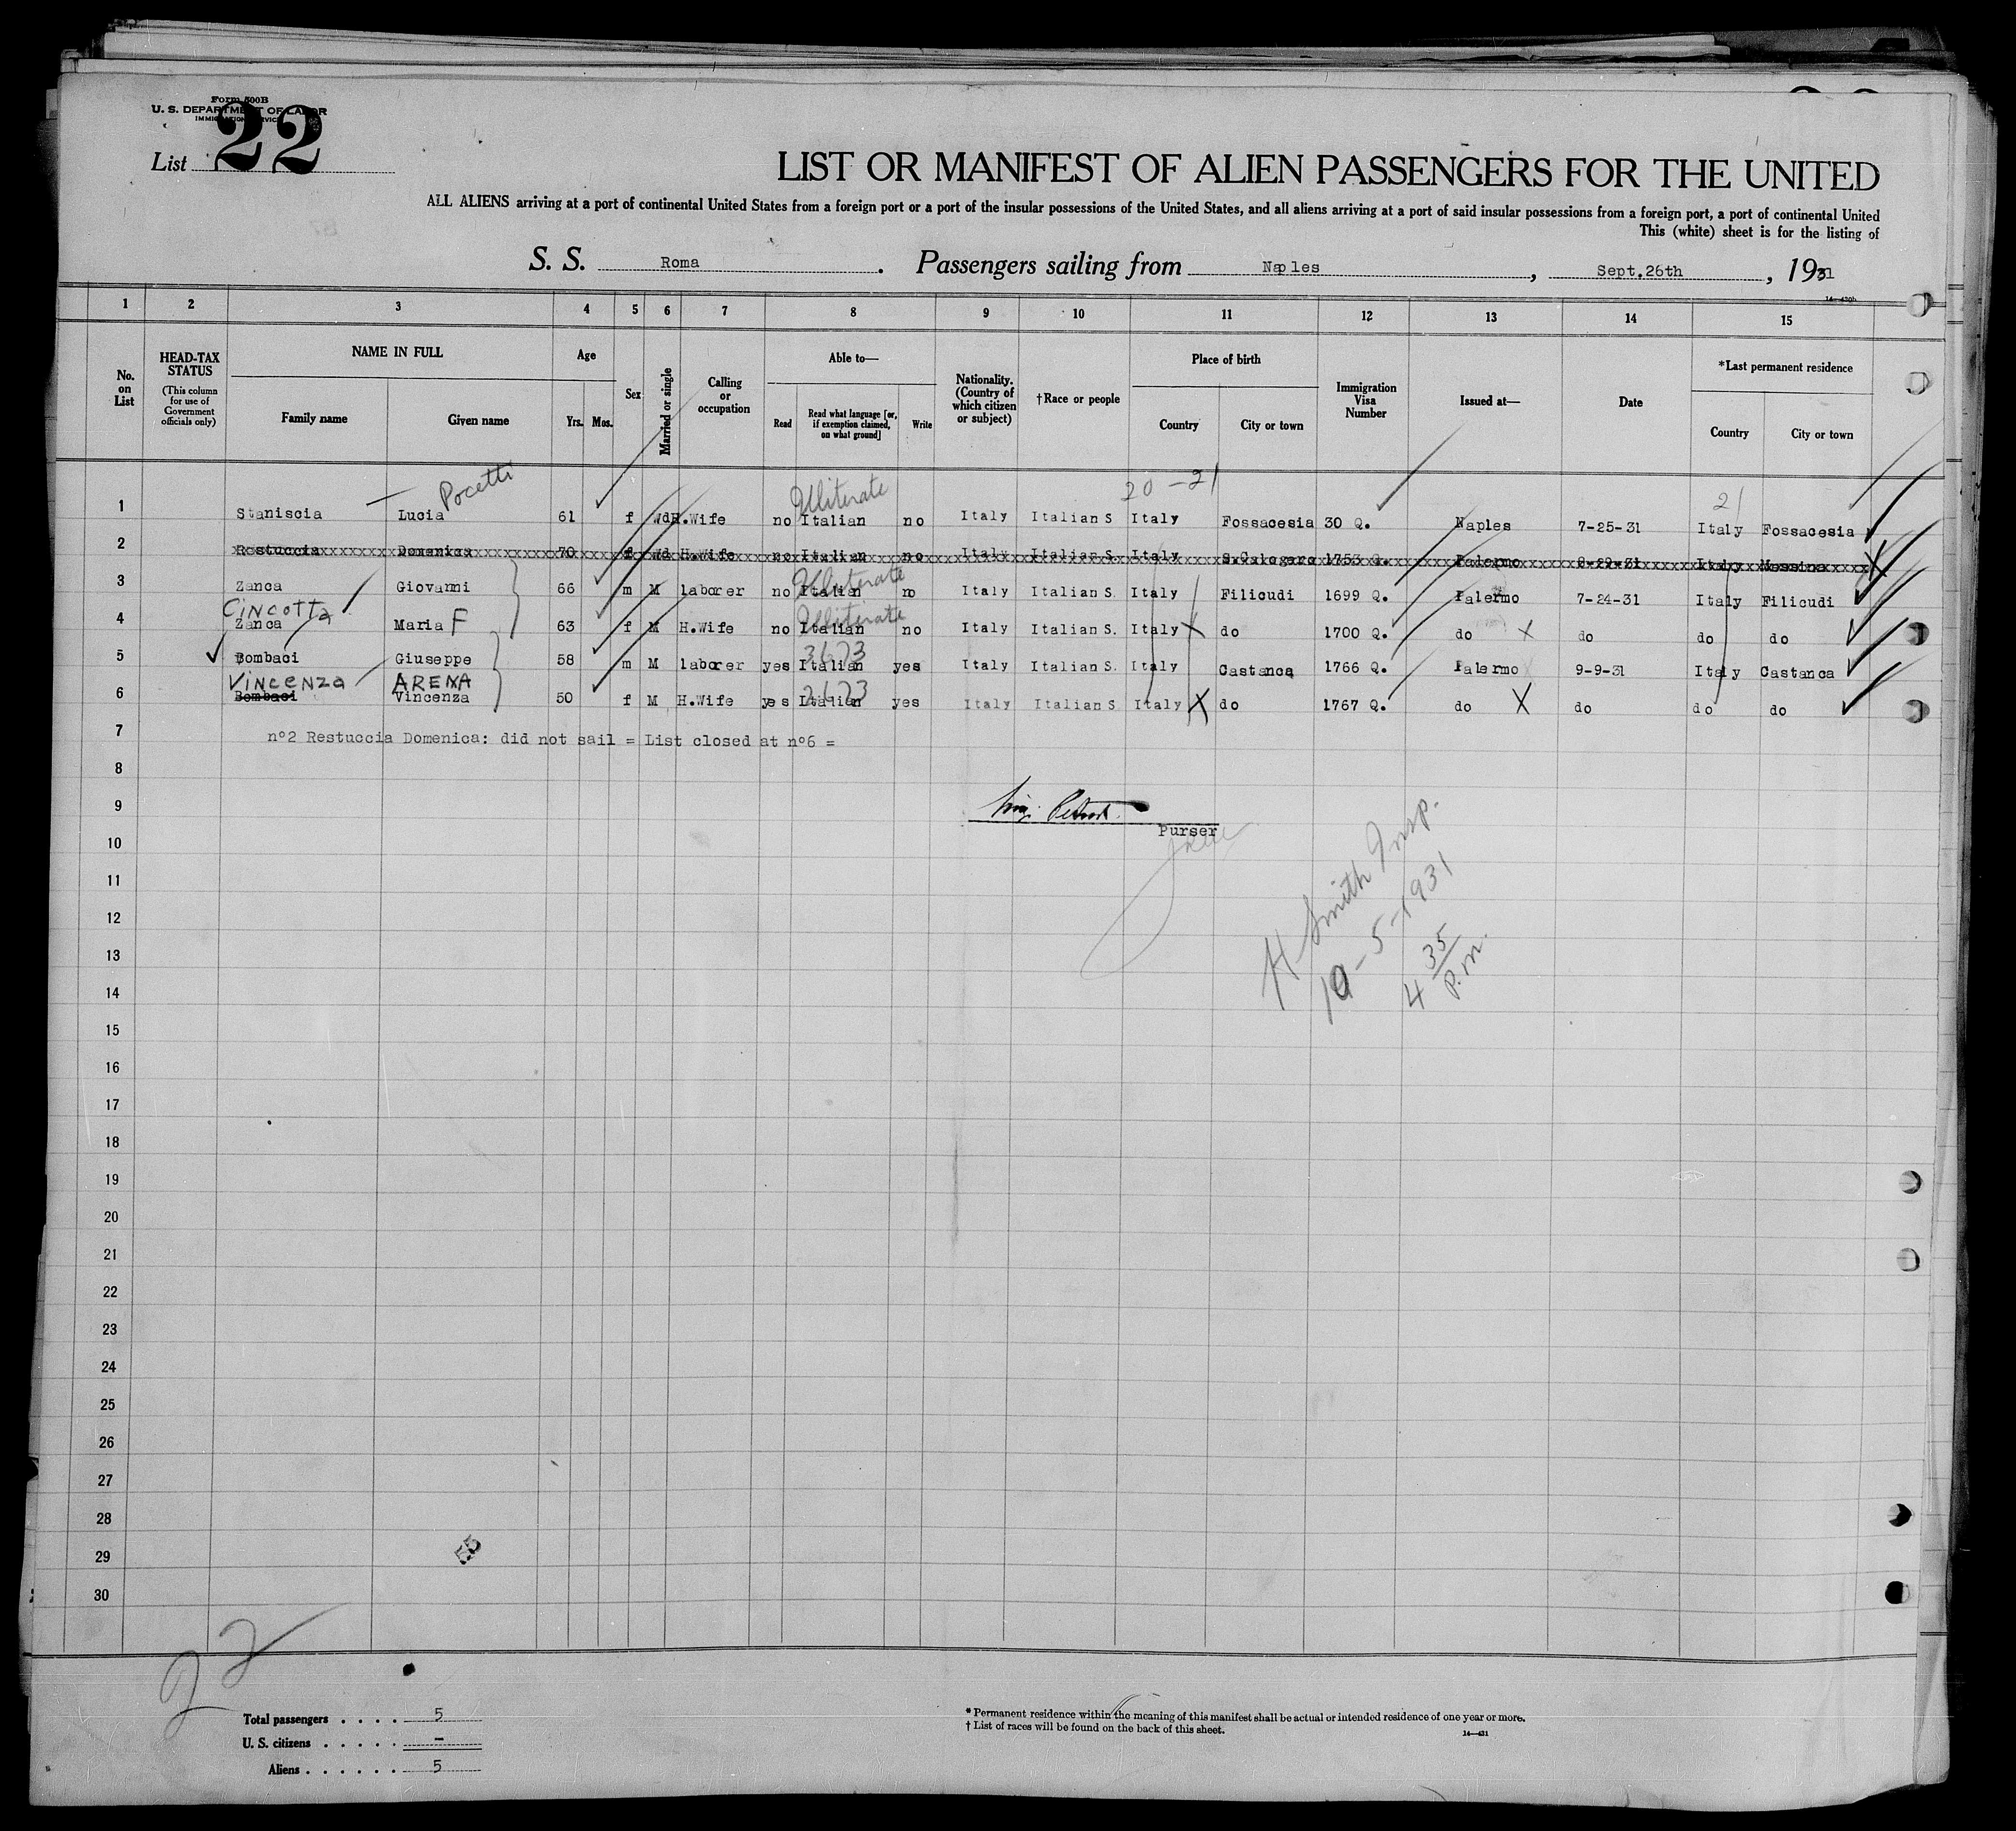 Form 500B
U. S. DEPARTMENT OF LABOR
IMMIGRATION SERVICE
List 22
LIST OR MANIFEST OF ALIEN PASSENGERS FOR THE UNITED
ALL ALIENS arriving at a port of continental United States from a foreign port or a port of the insular possessions of the United States, and all aliens arriving at a port of said insular possessions from a foreign port, a port of continental United
This (white) sheet is for the listing of
S. S. Roma. Passengers sailing from Naples, Sept.26th, 1931
1 2 3 4 5 6 7 8 9 10 11 12 13 14 15
No. on List
HEAD-TAX STATUS
(This column for use of Government officials only)
NAME IN FULL
Family name Given name
Age
Yrs. Mos.
Sex
Married or single
Calling or occupation
Able to—
Read Read what language [or, if exemption claimed, on what ground] Write
Nationality. (Country of which citizen or subject)
†Race or people
Place of birth
Country City or town
Immigration Visa Number
Issued at—
Date
*Last permanent residence
Country City or town
Pocetti Illiterate 20-21 21
1 Staniscia Lucia 61 f Wd H.Wife no Italian no Italy Italian S Italy Fossacesia 30 Q. Naples 7-25-31 Italy Fossacesia
2 Restuccia Domenica 70 f Wd H.Wife no Italian no Italy Italian S. Italy S.Calogero 1753 Q. Palermo 8-29-31 Italy Messina
Illiterate
3 Zanca Giovanni 66 m M laborer no Italian no Italy Italian S. Italy Filicudi 1699 Q. Palermo 7-24-31 Italy Filicudi
Cincotta Illiterate
4 Zanca Maria F 63 f M H.Wife no Italian no Italy Italian S. Italy X do 1700 Q. do X do do do
3673
5 Bombaci Giuseppe 58 m M laborer yes Italian yes Italy Italian S. Italy Castanea 1766 Q. Palermo 9-9-31 Italy Castanea
Vincenza ARENA 2673
6 Bombaci Vincenza 50 f M H.Wife yes Italian yes Italy Italian S Italy X do 1767 Q. do X do do do
7 nº2 Restuccia Domenica: did not sail = List closed at nº6 =
8
9
Purser
10
11
12
13
14
15
16
17
18
19
20
21
22
23
24
25
26
27
28
29
30
H Smith Insp.
10-5-1931
4 35 P.m.
55
22
Total passengers . . . . 5
U. S. citizens . . . . . —
Aliens . . . . . . 5
* Permanent residence within the meaning of this manifest shall be actual or intended residence of one year or more.
† List of races will be found on the back of this sheet.
14—431